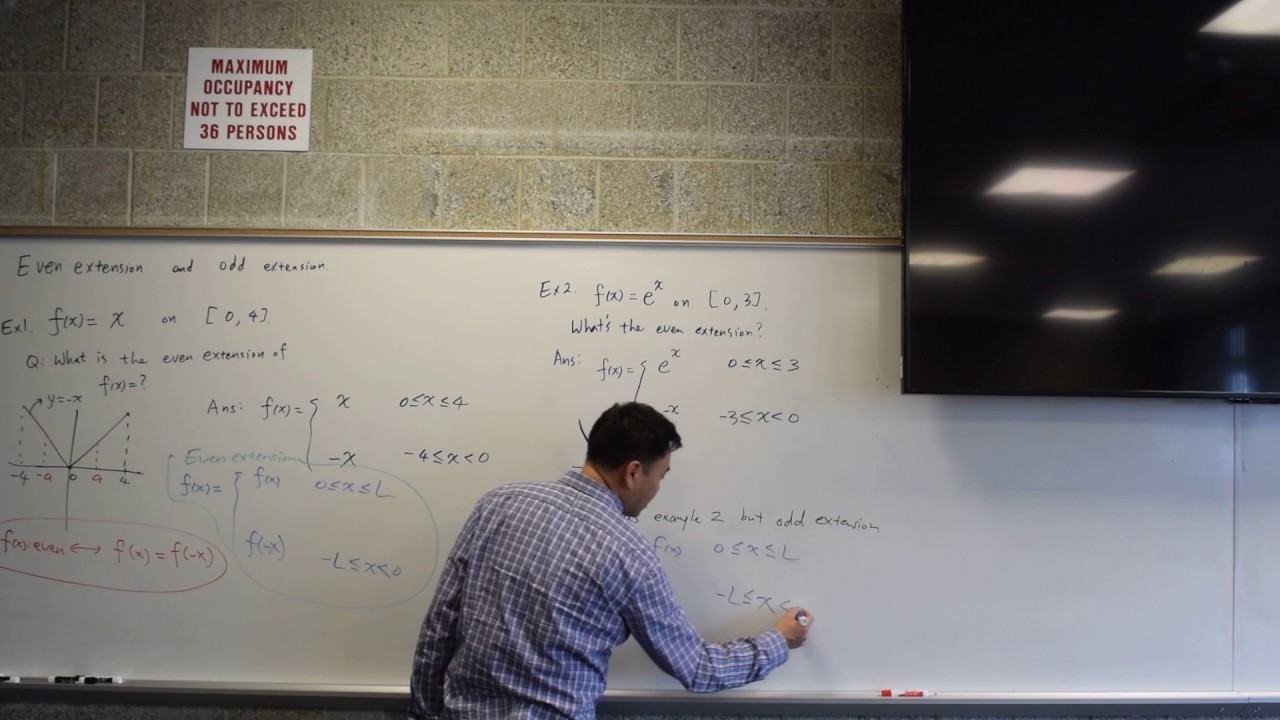 MAXIMUM
OCCUPANCY
NOT TO EXCEED
36 PERSONS
Even extension and odd extension.
Ex1. f(x) = x on [0, 4].
Q: What is the even extension of
f(x) = ?
y=-x
-4 -a 0 a 4
Ans: f(x) = { x 0≤x≤4
-x -4≤x<0
Even extension
f(x) = { f(x) 0≤x≤L
f(-x) -L≤x<0
f(x): even ⟷ f(x) = f(-x)
Ex2. f(x) = e^x on [0, 3].
What's the even extension?
Ans: f(x) = { e^x 0≤x≤3
-x -3≤x<0
example 2 but odd extension
f(x) 0≤x≤L
-L≤x<